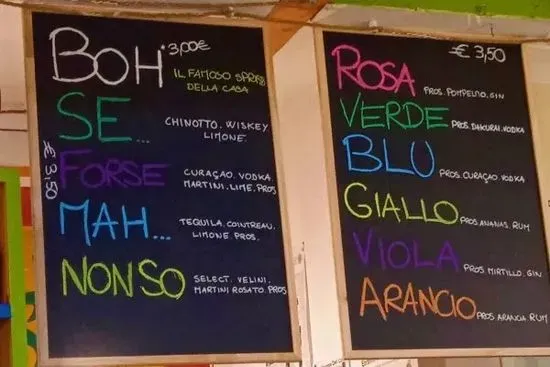 BOH 3,00€
IL FAMOSO SPRISS
DELLA CASA
SE...
CHINOTTO. WISKEY.
LIMONE.
€3,50
FORSE
CURAÇAO. VODKA
MARTINI. LIME. PROS.
MAH...
TEQUILA. COINTREAU.
LIMONE. PROS.
NON SO
SELECT. VELINI.
MARTINI ROSATO. PROS
€3,50
ROSA PROS. POMPELMO. GIN
VERDE PROS. DAKURAI. VODKA
BLU PROS. CURAÇAO. VODKA
GIALLO PROS. ANANAS. RUM
VIOLA PROS. MIRTILLO. GIN
ARANCIO PROS. ARANCIA. RUM